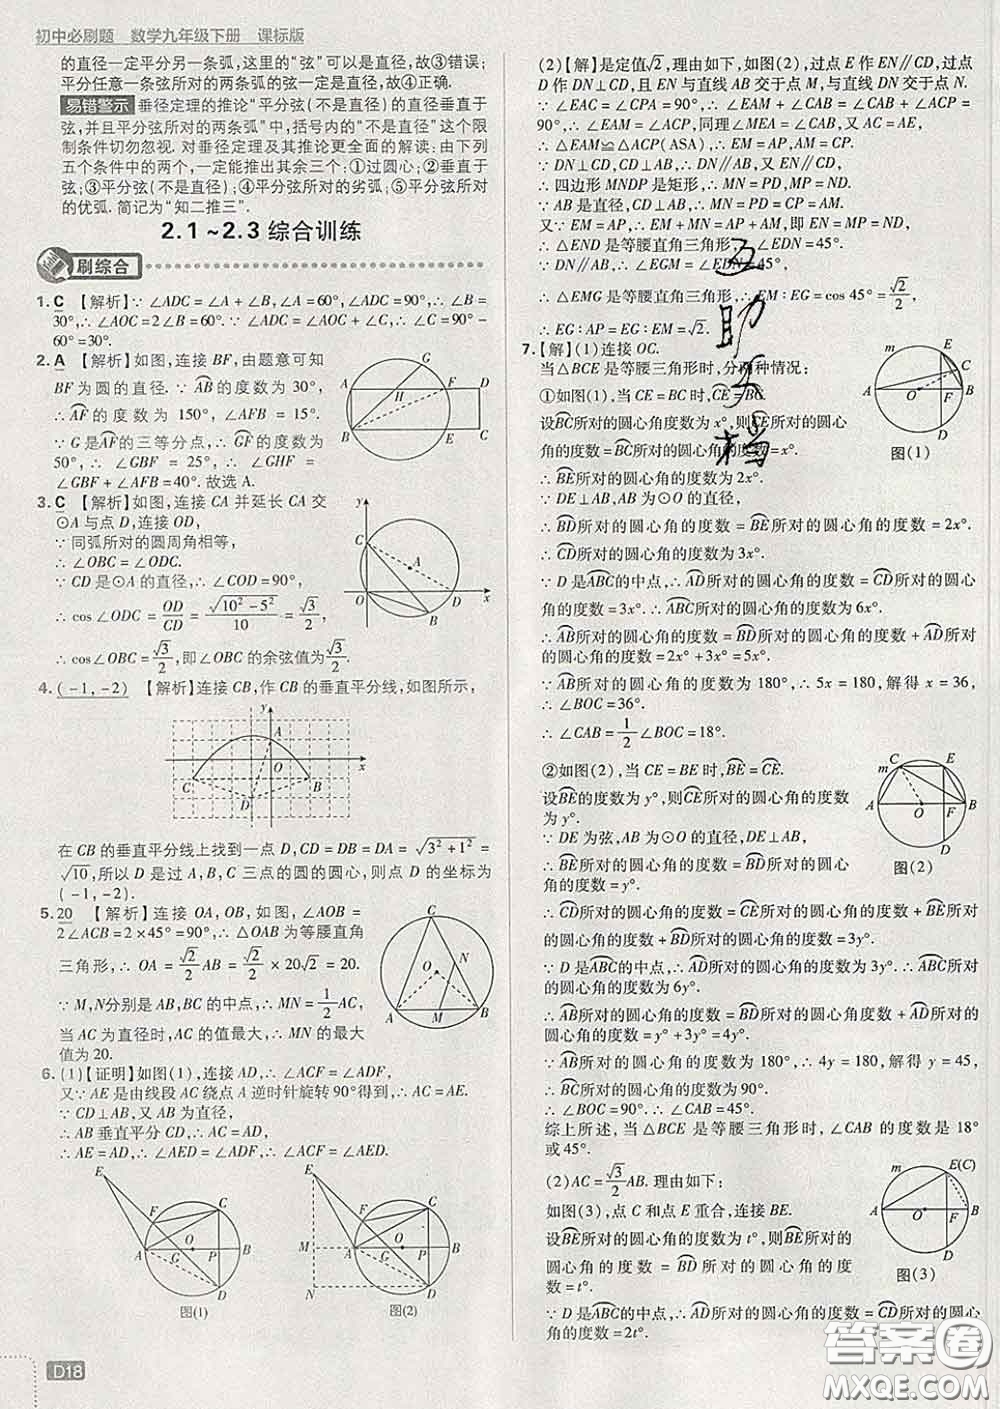 初中必刷题 数学九年级下册 课标版
的直径一定平分另一条弧,这里的“弦”可以是直径,故③错误;
平分任意一条弦所对的两条弧的弦一定是直径,故④正确.
易错警示 垂径定理的推论“平分弦(不是直径)的直径垂直于
弦,并且平分弦所对的两条弧”中,括号内的“不是直径”这个限
制条件切勿忽视. 对垂径定理及其推论更全面的解读:由下列
五个条件中的两个,一定能推出其余三个:①过圆心;②垂直于
弦;③平分弦(不是直径);④平分弦所对的劣弧;⑤平分弦所对
的优弧. 简记为“知二推三”.
2.1~2.3综合训练
刷综合
1. C 【解析】∵ ∠ADC = ∠A + ∠B,∠A = 60°,∠B =
30°,∴ ∠AOC = 2∠B = 60°. ∵ ∠ADC = 60° +
30° = 90°,∠ADC = ∠AOC + ∠C,∴ ∠C = 90° -
60° = 30°.
2. A 【解析】如图,连接 BF,由题意可知
BF 为圆的直径. ∵ AB⌢的度数为 30°,
∴ AF⌢的度数为 150°,∠AFB = 15°.
∵ G 是AF⌢的三等分点,∴ GF⌢的度数为
50°,∴ ∠GBF = 25°,∴ ∠GHF =
∠GBF + ∠AFB = 40°. 故选 A.
3. C 【解析】如图,连接 CA 并延长 CA 交
⊙A 与点 D,连接 OD,
∵ 同弧所对的圆周角相等,
∴ ∠OBC = ∠ODC.
∵ CD 是⊙A 的直径,∴ ∠COD = 90°,
∴ cos∠ODC = OD/CD = √(10² - 5²)/10 = √3/2,
∴ cos∠OBC = √3/2,即∠OBC 的余弦值为√3/2.
4. (-1,-2) 【解析】连接 CB,作 CB 的垂直平分线,如图所示,
在 CB 的垂直平分线上找到一点 D,CD = DB = DA = √(3² + 1²) =
√10,所以 D 是过 A,B,C 三点的圆的圆心,则点 D 的坐标为
(-1,-2).
5. 20 【解析】连接 OA,OB,如图,∠AOB =
2∠ACB = 2×45° = 90°,∴ △OAB 为等腰直角
三角形,∴ OA = √2/2 AB = √2/2 × 20√2 = 20.
∵ M,N分别是 AB,BC 的中点,∴ MN = 1/2 AC,
当 AC 为直径时,AC 的值最大,∴ MN 的最大
值为 20.
6. (1)【证明】如图(1),连接 AD,∴ ∠ACF = ∠ADF,
又∵ AE 是由线段 AC 绕点 A 逆时针旋转 90°得到,∴ AC = AE.
∵ CD⊥AB,又 AB 为直径,
∴ AB 垂直平分 CD,∴ AC = AD,
∴ AE = AD,∴ ∠AED = ∠ADF,∴ ∠ACF = ∠AED.
图(1) 图(2)
D18
(2)【解】是定值√2,理由如下,如图(2),过点 E 作 EN∥CD,过点
D 作 DN⊥CD,且 EN 与直线 AB 交于点 M,与直线 DN 交于点 N.
∵ ∠EAC = ∠CPA = 90°,∴ ∠EAM + ∠CAB = ∠CAB + ∠ACP =
90°,∴ ∠EAM = ∠ACP,同理∠MEA = ∠CAB,又∵ AC = AE,
∴ △EAM≌△ACP(ASA),∴ EM = AP,AM = CP.
∵ DN⊥CD,EN∥CD,∴ DN⊥EN. 又∵ EN∥CD,CD⊥AB,
∴ 四边形 MNDP 是矩形,∴ MN = DP,DN = PM.
∵ AB 是直径,CD⊥AB,∴ CP = PD,∴ MN = PD = CP = AM.
又∵ EM = AP,∴ EM + MN = AP + AM,即 EN = MP = DN,
∴ △END 是等腰直角三角形,∴ ∠EDN = 45°.
∵ DN∥AB,∴ ∠EGM = ∠EDN = 45°,
∴ △EMG 是等腰直角三角形,∴ EM∶EG = cos 45° = √2/2,
∴ EG∶AP = EG∶EM = √2.
7.【解】(1)连接 OC.
当△BCE 是等腰三角形时,分两种情况:
①如图(1),当 CE = BC 时,CE⌢ = BC⌢.
设BC⌢所对的圆心角度数为 x°,则CE⌢所对的圆心
角的度数 = BC⌢所对的圆心角的度数 = x°.
∴ BE⌢所对的圆心角的度数为 2x°.
∵ DE⊥AB,AB 为⊙O 的直径,
∴ BD⌢所对的圆心角的度数 = BE⌢所对的圆心角的度数 = 2x°.
∴ CD⌢所对的圆心角的度数为 3x°.
∵ D 是ABC⌢的中点,∴ AD⌢所对的圆心角的度数 = CD⌢所对的圆心
角的度数 = 3x°. ∴ ABC⌢所对的圆心角的度数为 6x°.
∴ AB⌢所对的圆心角的度数 = BD⌢所对的圆心角的度数 + AD⌢所对
的圆心角的度数 = 2x° + 3x° = 5x°.
∵ AB⌢所对的圆心角的度数为 180°,∴ 5x = 180,解得 x = 36,
∴ ∠BOC = 36°.
∴ ∠CAB = 1/2∠BOC = 18°.
图(1)
②如图(2),当 CE = BE 时,BE⌢ = CE⌢.
设BE⌢的度数为 y°,则CE⌢所对的圆心角的度
数为 y°.
∵ DE 为弦,AB 为⊙O 的直径,DE⊥AB,
∴ BE⌢所对的圆心角的度数 = BD⌢所对的圆
心角的度数 = y°.
∴ CD⌢所对的圆心角的度数 = CE⌢所对的圆心角的度数 + BE⌢所对
的圆心角的度数 + BD⌢所对的圆心角的度数 = 3y°.
∵ D 是ABC⌢的中点,∴ AD⌢所对的圆心角的度数为 3y°. ∴ ABC⌢所
对的圆心角的度数为 6y°.
∴ AB⌢所对的圆心角的度数 = BD⌢所对的圆心角的度数 + AD⌢所对
的圆心角的度数 = y° + 3y° = 4y°.
∵ AB⌢所对的圆心角的度数为 180°,∴ 4y = 180,解得 y = 45,
∴ BC⌢所对的圆心角的度数为 90°.
∴ ∠BOC = 90°. ∴ ∠CAB = 45°.
综上所述,当△BCE 是等腰三角形时,∠CAB 的度数是 18°
或 45°.
图(2)
(2)AC = √3/2 AB. 理由如下:
如图(3),点 C 和点 E 重合,连接 BE.
设BE⌢所对的圆心角的度数为 t°,则BE⌢所对的
圆心角的度数 = BD⌢所对的圆心角的度数 = t°.
∴ DBE⌢所对的圆心角的度数为 2t°.
∵ D 是ABC⌢的中点,∴ AD⌢所对的圆心角的度数 = CD⌢所对的圆心
角的度数 = 2t°.
图(3)
互助文档
答案圈
MXQE.COM